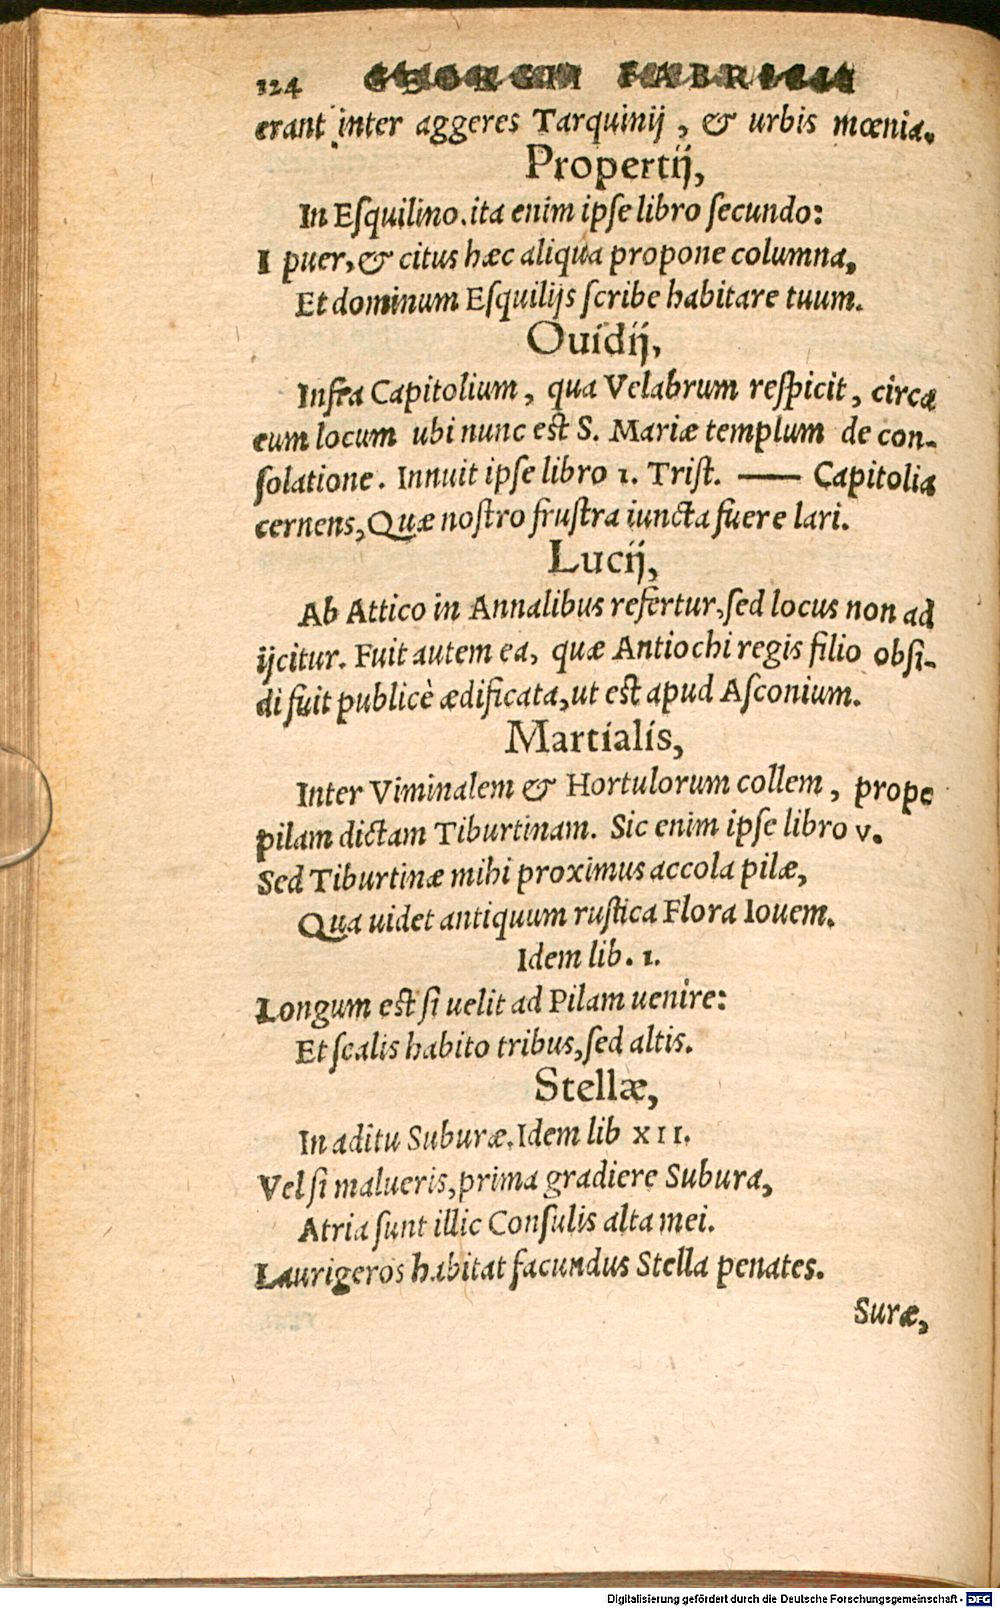 124 GEORGII FABRICII
erant inter aggeres Tarquinij, & urbis mœnia.
Propertij,
In Eſquilino. ita enim ipſe libro ſecundo:
I puer, & citus hæc aliqua propone columna,
Et dominum Eſquilijs ſcribe habitare tuum.
Ouidij,
Infra Capitolium, qua Velabrum reſpicit, circa
eum locum ubi nunc est S. Mariæ templum de con-
ſolatione. Innuit ipſe libro 1. Triſt. —— Capitolia
cernens, Quæ noſtro fruſtra iuncta fuere lari.
Lucij,
Ab Attico in Annalibus refertur, ſed locus non ad
ijcitur. Fuit autem ea, quæ Antiochi regis filio obſi-
di fuit publicè ædificata, ut est apud Aſconium.
Martialis,
Inter Viminalem & Hortulorum collem, prope
pilam dictam Tiburtinam. Sic enim ipſe libro v.
Sed Tiburtinæ mihi proximus accola pilæ,
Qua uidet antiquum ruſtica Flora Iouem.
Idem lib. 1.
Longum est ſi uelit ad Pilam uenire:
Et ſcalis habito tribus, ſed altis.
Stellæ,
In aditu Suburæ. Idem lib XII.
Vel ſi malueris, prima gradiere Subura,
Atria ſunt illic Conſulis alta mei.
Laurigeros habitat facundus Stella penates.
Suræ,
Digitalisierung gefördert durch die Deutsche Forschungsgemeinschaft - DFG